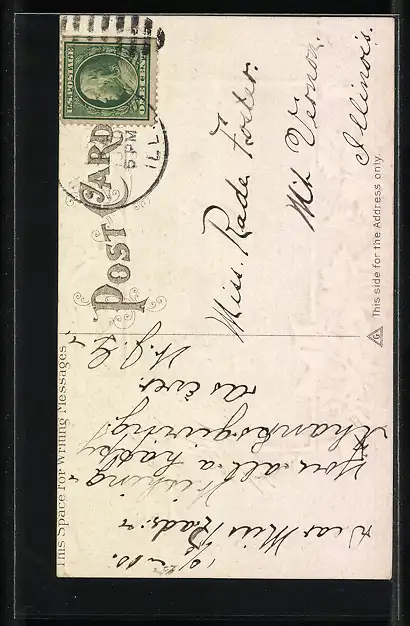 This Space for Writing Messages
Dear Miss Rade:-
Wishing
You all a happy
Thanksgiving!
As ever
POST CARD
U.S. POSTAGE
5 PM
ILL.
Miss Rade Foster.
Mt Vernon.
Illinois.
This side for the Address only.